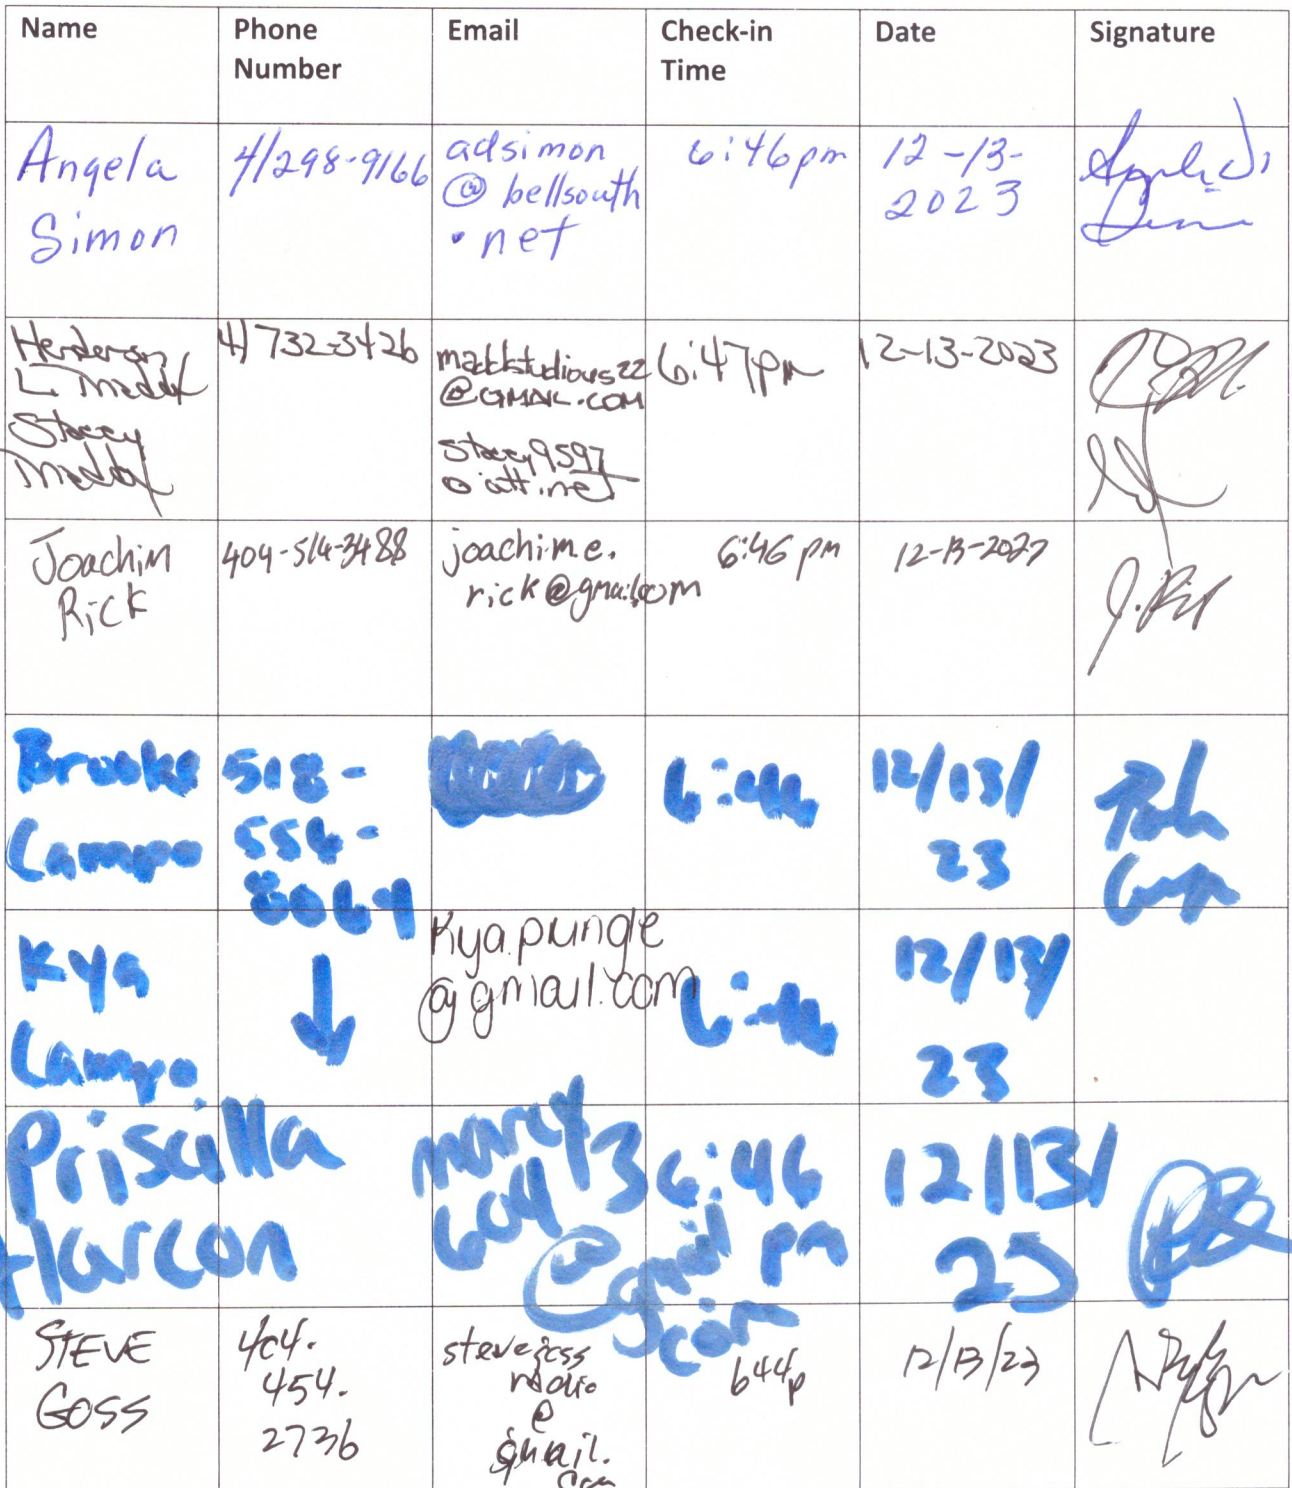 Name Phone Number Email Check-in Time Date Signature
Angela Simon 4/298-9166 adsimon@bellsouth.net 6:46pm 12-13-2023
Henderson L. Maddox 4/732-3426 maddstudious22@GMAIL.COM 6:47pm 12-13-2023
Stacey Maddox stacey9597@att.net
Joachim Rick 404-514-3488 joachim.e.rick@gmail.com 6:46 pm
Brooke Campo 518-554-8064 6:46 12/13/23
Kya Campo ↓ Kya.punge@gmail.com 6:46 12/13/23
Priscilla Harcon marcy3604@gmail.com 6:46 pm 12/13/23
STEVE GOSS 404.454.2736 stevegossradio@gmail.com 644p 12/13/23